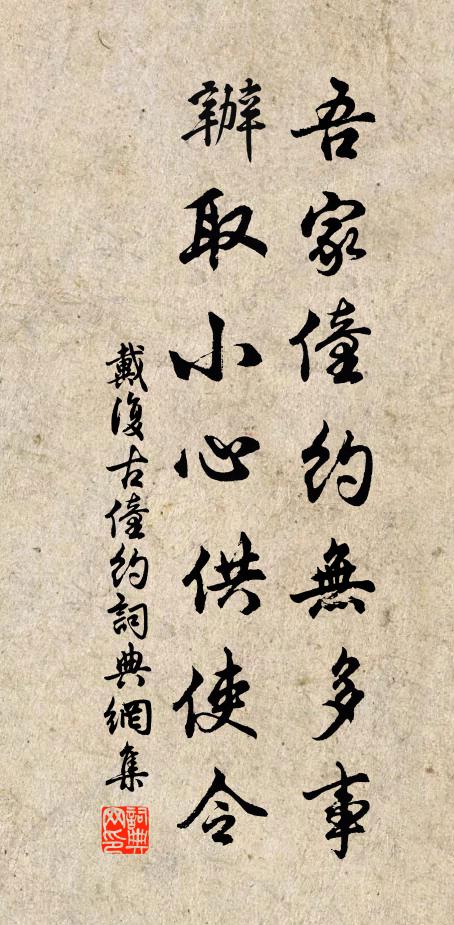 吾家僮約無多事
辦取小心供使令
戴復古僮約詞典網集
詞典网印